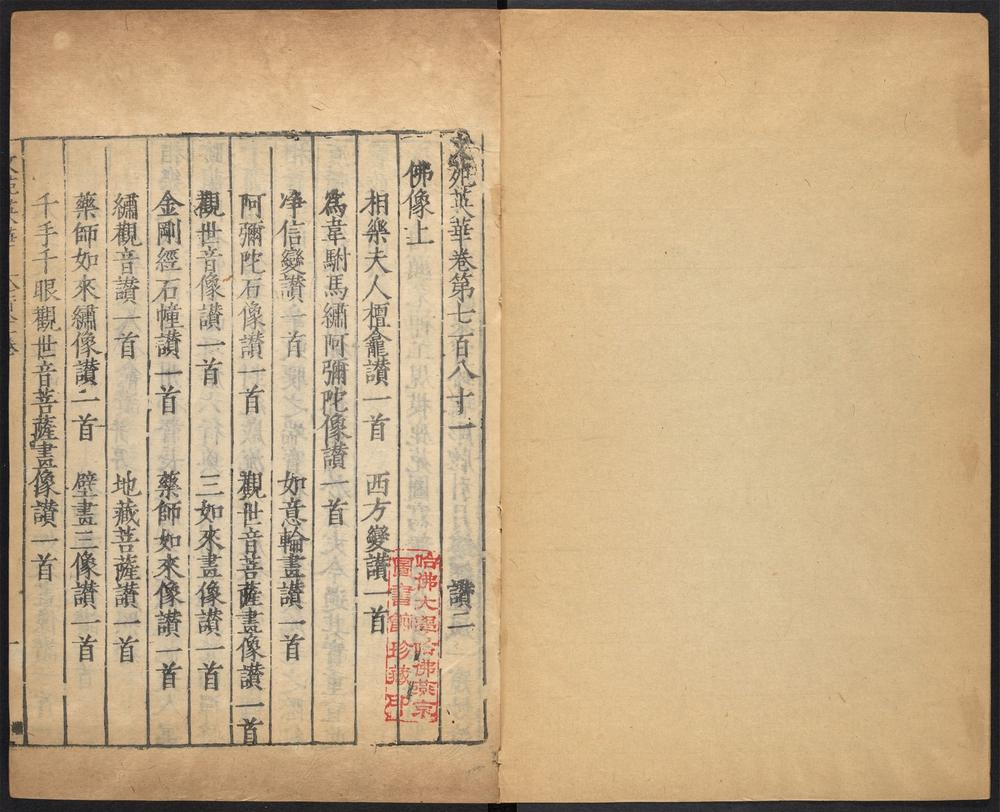 文苑英華卷第七百八十一 讚二
佛像上
相樂夫人檀龕讚一首 西方變讚一首
為韋駙馬繡阿彌陀像讚一首
净信變讚一首 如意輪畫讚一首
阿彌陀石像讚一首 觀世音菩薩畫像讚一首
觀世音像讚一首 三如來畫像讚一首
金剛經石幢讚一首 藥師如來像讚一首
繡觀音讚一首 地藏菩薩讚一首
藥師如來繡像讚二首 壁畫三像讚一首
千手千眼觀世音菩薩畫像讚一首
哈佛大學哈佛燕京
圖書館珍藏印